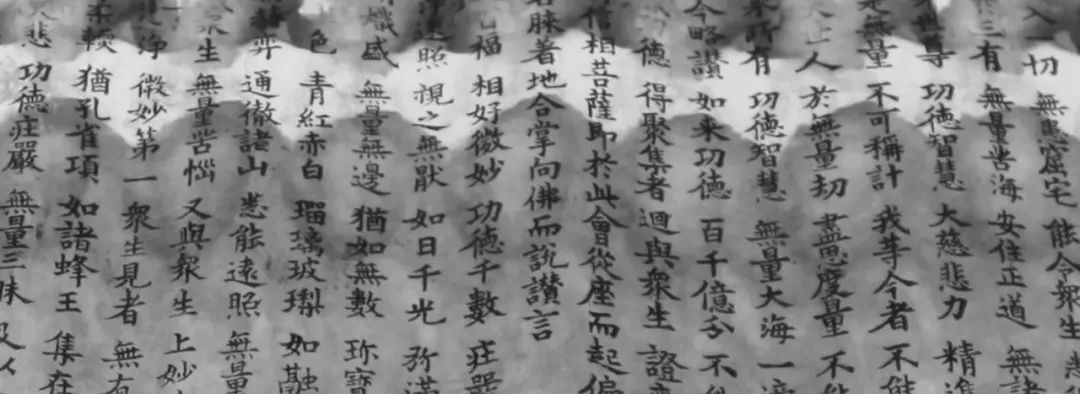 切 無患窟宅 能令眾生
三有 無量苦海 安住正道 無諸
世尊 功德智慧 大慈悲力 精進
是無量 不可稱計 我等今者 不能
上人 於無量劫 盡思度量 不能
來所有 功德智慧 無量大海 一渧
今略讚 如來功德 百千億分 不能
德 得聚集者 迴與眾生 證
信相菩薩即於此會從座而起偏
右膝著地合掌向佛而說讚言
福 相好微妙 功德千數 莊嚴
遠照 視之無猒 如日千光 弥滿
熾盛 無量無邊 猶如無數 珎寶
色 青紅赤白 瑠璃玻瓈 如融
弈 通徹諸山 悉能遠照 無量
眾生 無量苦惱 又與眾生 上妙
淨 微妙第一 眾生見者 無有
柔軟 猶孔雀項 如諸蜂王 集在
悲 功德莊嚴 無量三昧